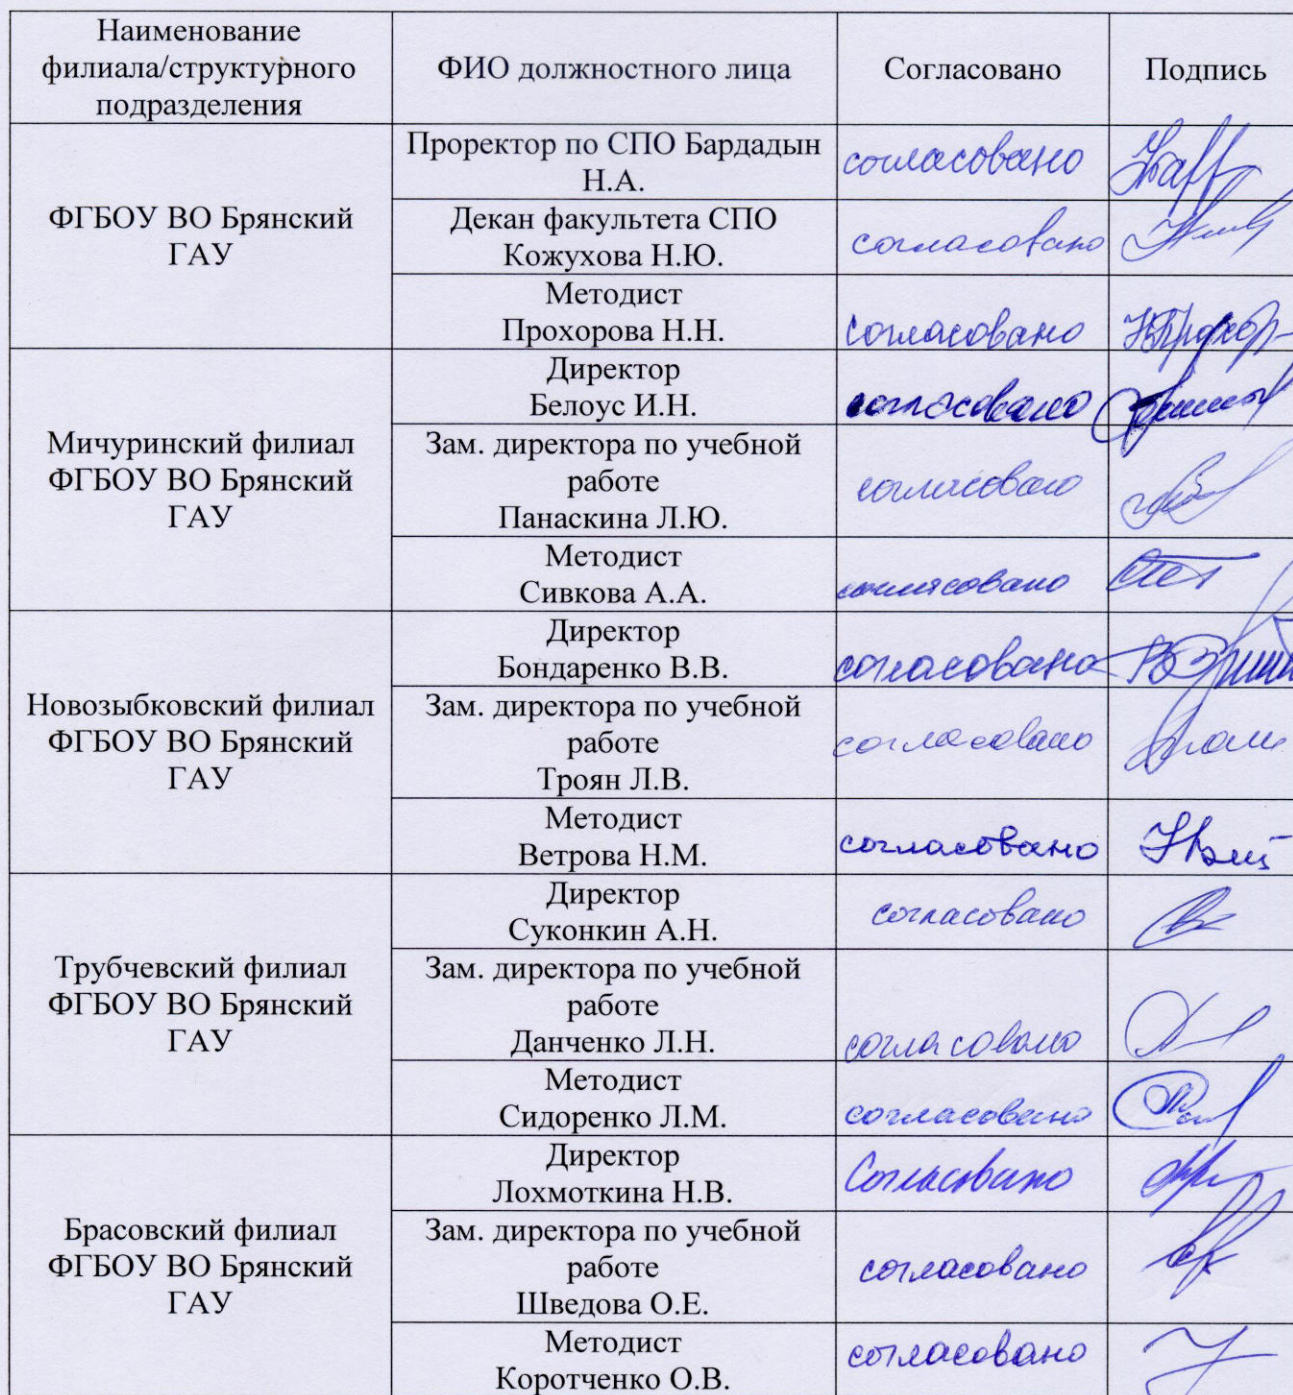 Наименование
филиала/структурного
подразделения
ФИО должностного лица
Согласовано
Подпись
ФГБОУ ВО Брянский
ГАУ
Проректор по СПО Бардадын
Н.А.
согласовано
Декан факультета СПО
Кожухова Н.Ю.
согласовано
Методист
Прохорова Н.Н.
согласовано
Мичуринский филиал
ФГБОУ ВО Брянский
ГАУ
Директор
Белоус И.Н.
согласовано
Зам. директора по учебной
работе
Панаскина Л.Ю.
согласовано
Методист
Сивкова А.А.
согласовано
Новозыбковский филиал
ФГБОУ ВО Брянский
ГАУ
Директор
Бондаренко В.В.
согласовано
Зам. директора по учебной
работе
Троян Л.В.
согласовано
Методист
Ветрова Н.М.
согласовано
Трубчевский филиал
ФГБОУ ВО Брянский
ГАУ
Директор
Суконкин А.Н.
согласовано
Зам. директора по учебной
работе
Данченко Л.Н.
согласовано
Методист
Сидоренко Л.М.
согласовано
Брасовский филиал
ФГБОУ ВО Брянский
ГАУ
Директор
Лохмоткина Н.В.
Согласовано
Зам. директора по учебной
работе
Шведова О.Е.
согласовано
Методист
Коротченко О.В.
согласовано